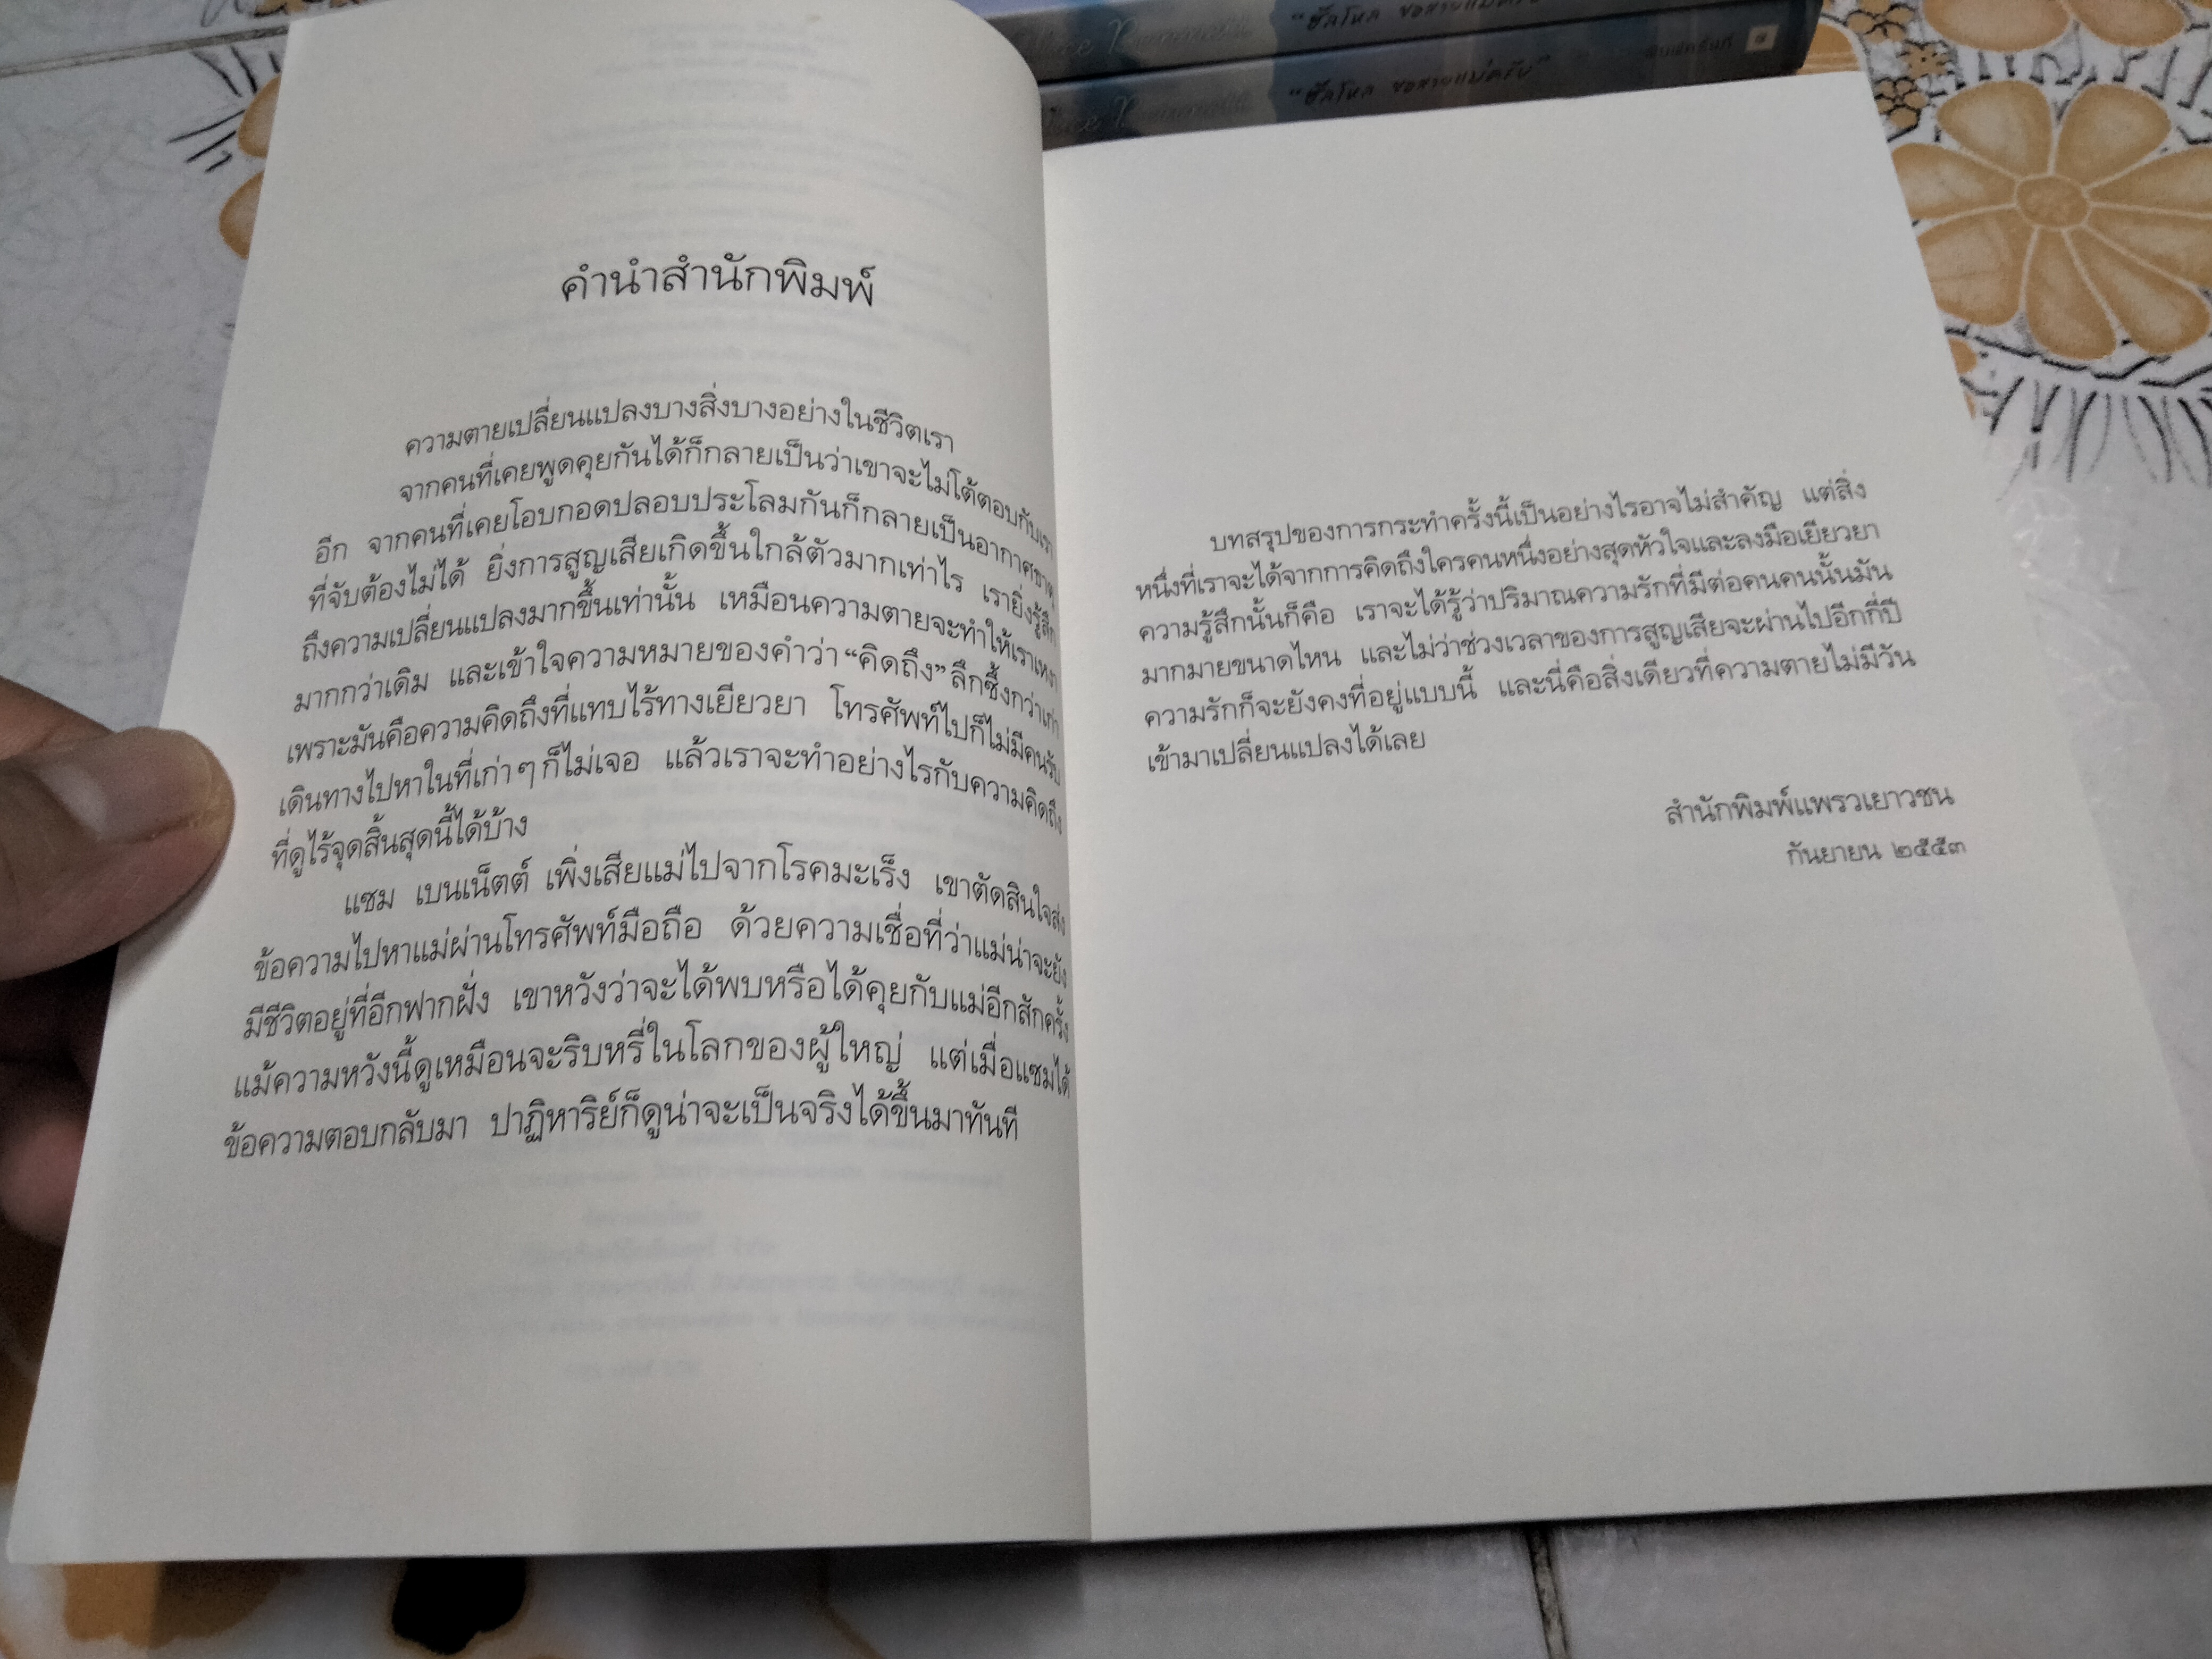 คำนำสำนักพิมพ์
ความตายเปลี่ยนแปลงบางสิ่งบางอย่างในชีวิตเรา
จากคนที่เคยพูดคุยกันได้ก็กลายเป็นว่าเขาจะไม่โต้ตอบกับเรา
อีก จากคนที่เคยโอบกอดปลอบประโลมกันก็กลายเป็นอากาศธาตุ
ที่จับต้องไม่ได้ ยิ่งการสูญเสียเกิดขึ้นใกล้ตัวมากเท่าไร เรายิ่งรู้สึก
ถึงความเปลี่ยนแปลงมากขึ้นเท่านั้น เหมือนความตายจะทำให้เราเหงา
มากกว่าเดิม และเข้าใจความหมายของคำว่า “คิดถึง” ลึกซึ้งกว่าเก่า
เพราะมันคือความคิดถึงที่แทบไร้ทางเยียวยา โทรศัพท์ไปก็ไม่มีคนรับ
เดินทางไปหาในที่เก่าๆ ก็ไม่เจอ แล้วเราจะทำอย่างไรกับความคิดถึง
ที่ดูไร้จุดสิ้นสุดนี้ได้บ้าง
แซม เบนเน็ตต์ เพิ่งเสียแม่ไปจากโรคมะเร็ง เขาตัดสินใจส่ง
ข้อความไปหาแม่ผ่านโทรศัพท์มือถือ ด้วยความเชื่อที่ว่าแม่น่าจะยัง
มีชีวิตอยู่ที่อีกฟากฝั่ง เขาหวังว่าจะได้พบหรือได้คุยกับแม่อีกสักครั้ง
แม้ความหวังนี้ดูเหมือนจะริบหรี่ในโลกของผู้ใหญ่ แต่เมื่อแซมได้
ข้อความตอบกลับมา ปาฏิหาริย์ก็ดูน่าจะเป็นจริงได้ขึ้นมาทันที
"ฮัลโหล ขอสายแม่ครับ"
"ฮัลโหล ขอสายแม่ครับ"
บทสรุปของการกระทำครั้งนี้เป็นอย่างไรอาจไม่สำคัญ แต่สิ่ง
หนึ่งที่เราจะได้จากการคิดถึงใครคนหนึ่งอย่างสุดหัวใจและลงมือเยียวยา
ความรู้สึกนั้นก็คือ เราจะได้รู้ว่าปริมาณความรักที่มีต่อคนคนนั้นมัน
มากมายขนาดไหน และไม่ว่าช่วงเวลาของการสูญเสียจะผ่านไปอีกกี่ปี
ความรักก็จะยังคงที่อยู่แบบนี้ และนี่คือสิ่งเดียวที่ความตายไม่มีวัน
เข้ามาเปลี่ยนแปลงได้เลย
สำนักพิมพ์แพรวเยาวชน
กันยายน ๒๕๕๓